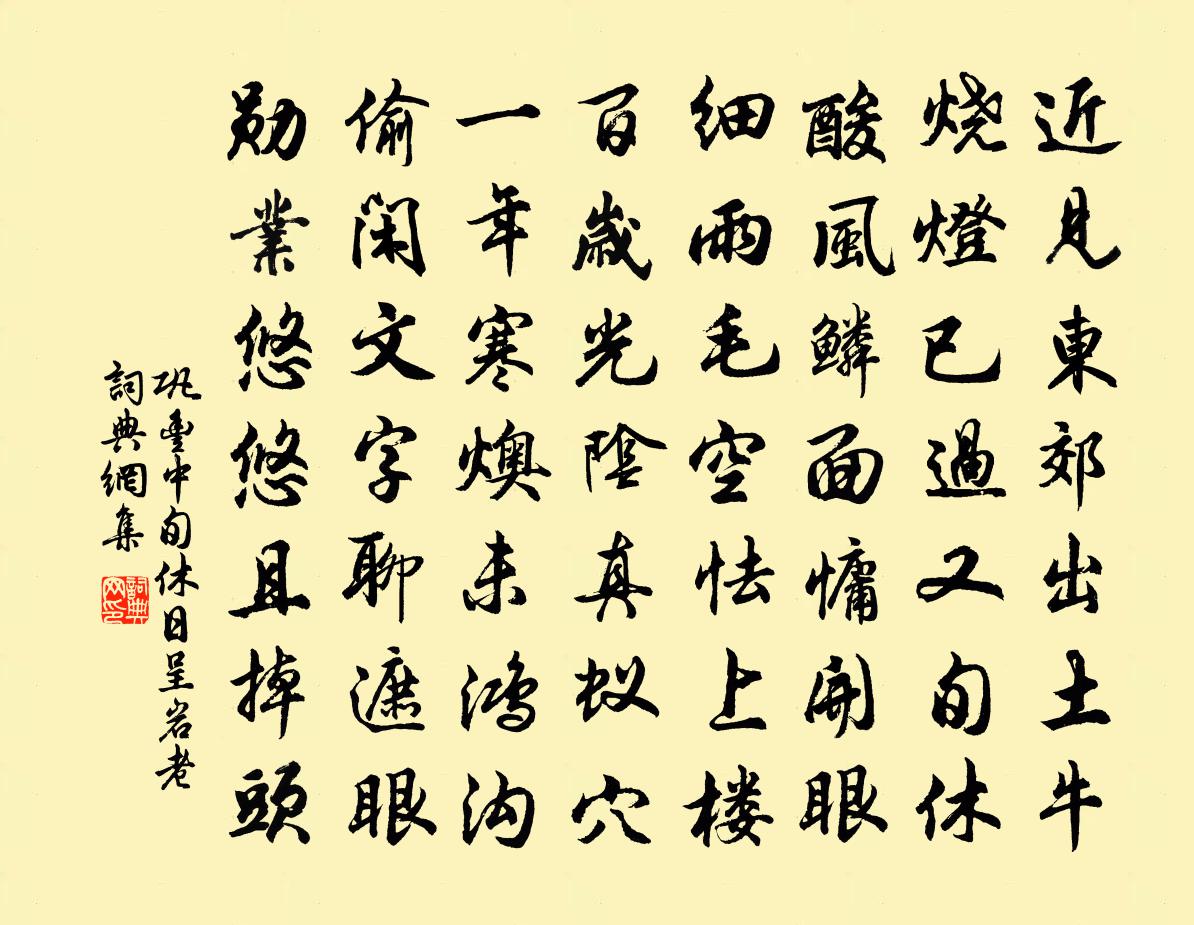 近見東郊出土牛
烧燈已過又旬休
酸風鳞面慵開眼
细雨毛空怯上楼
百歲光陰真蚁穴
一年寒燠未鸿沟
偷閑文字聊遮眼
勋業悠悠且掉頭
巩豊中旬休日呈岩老
詞典網集